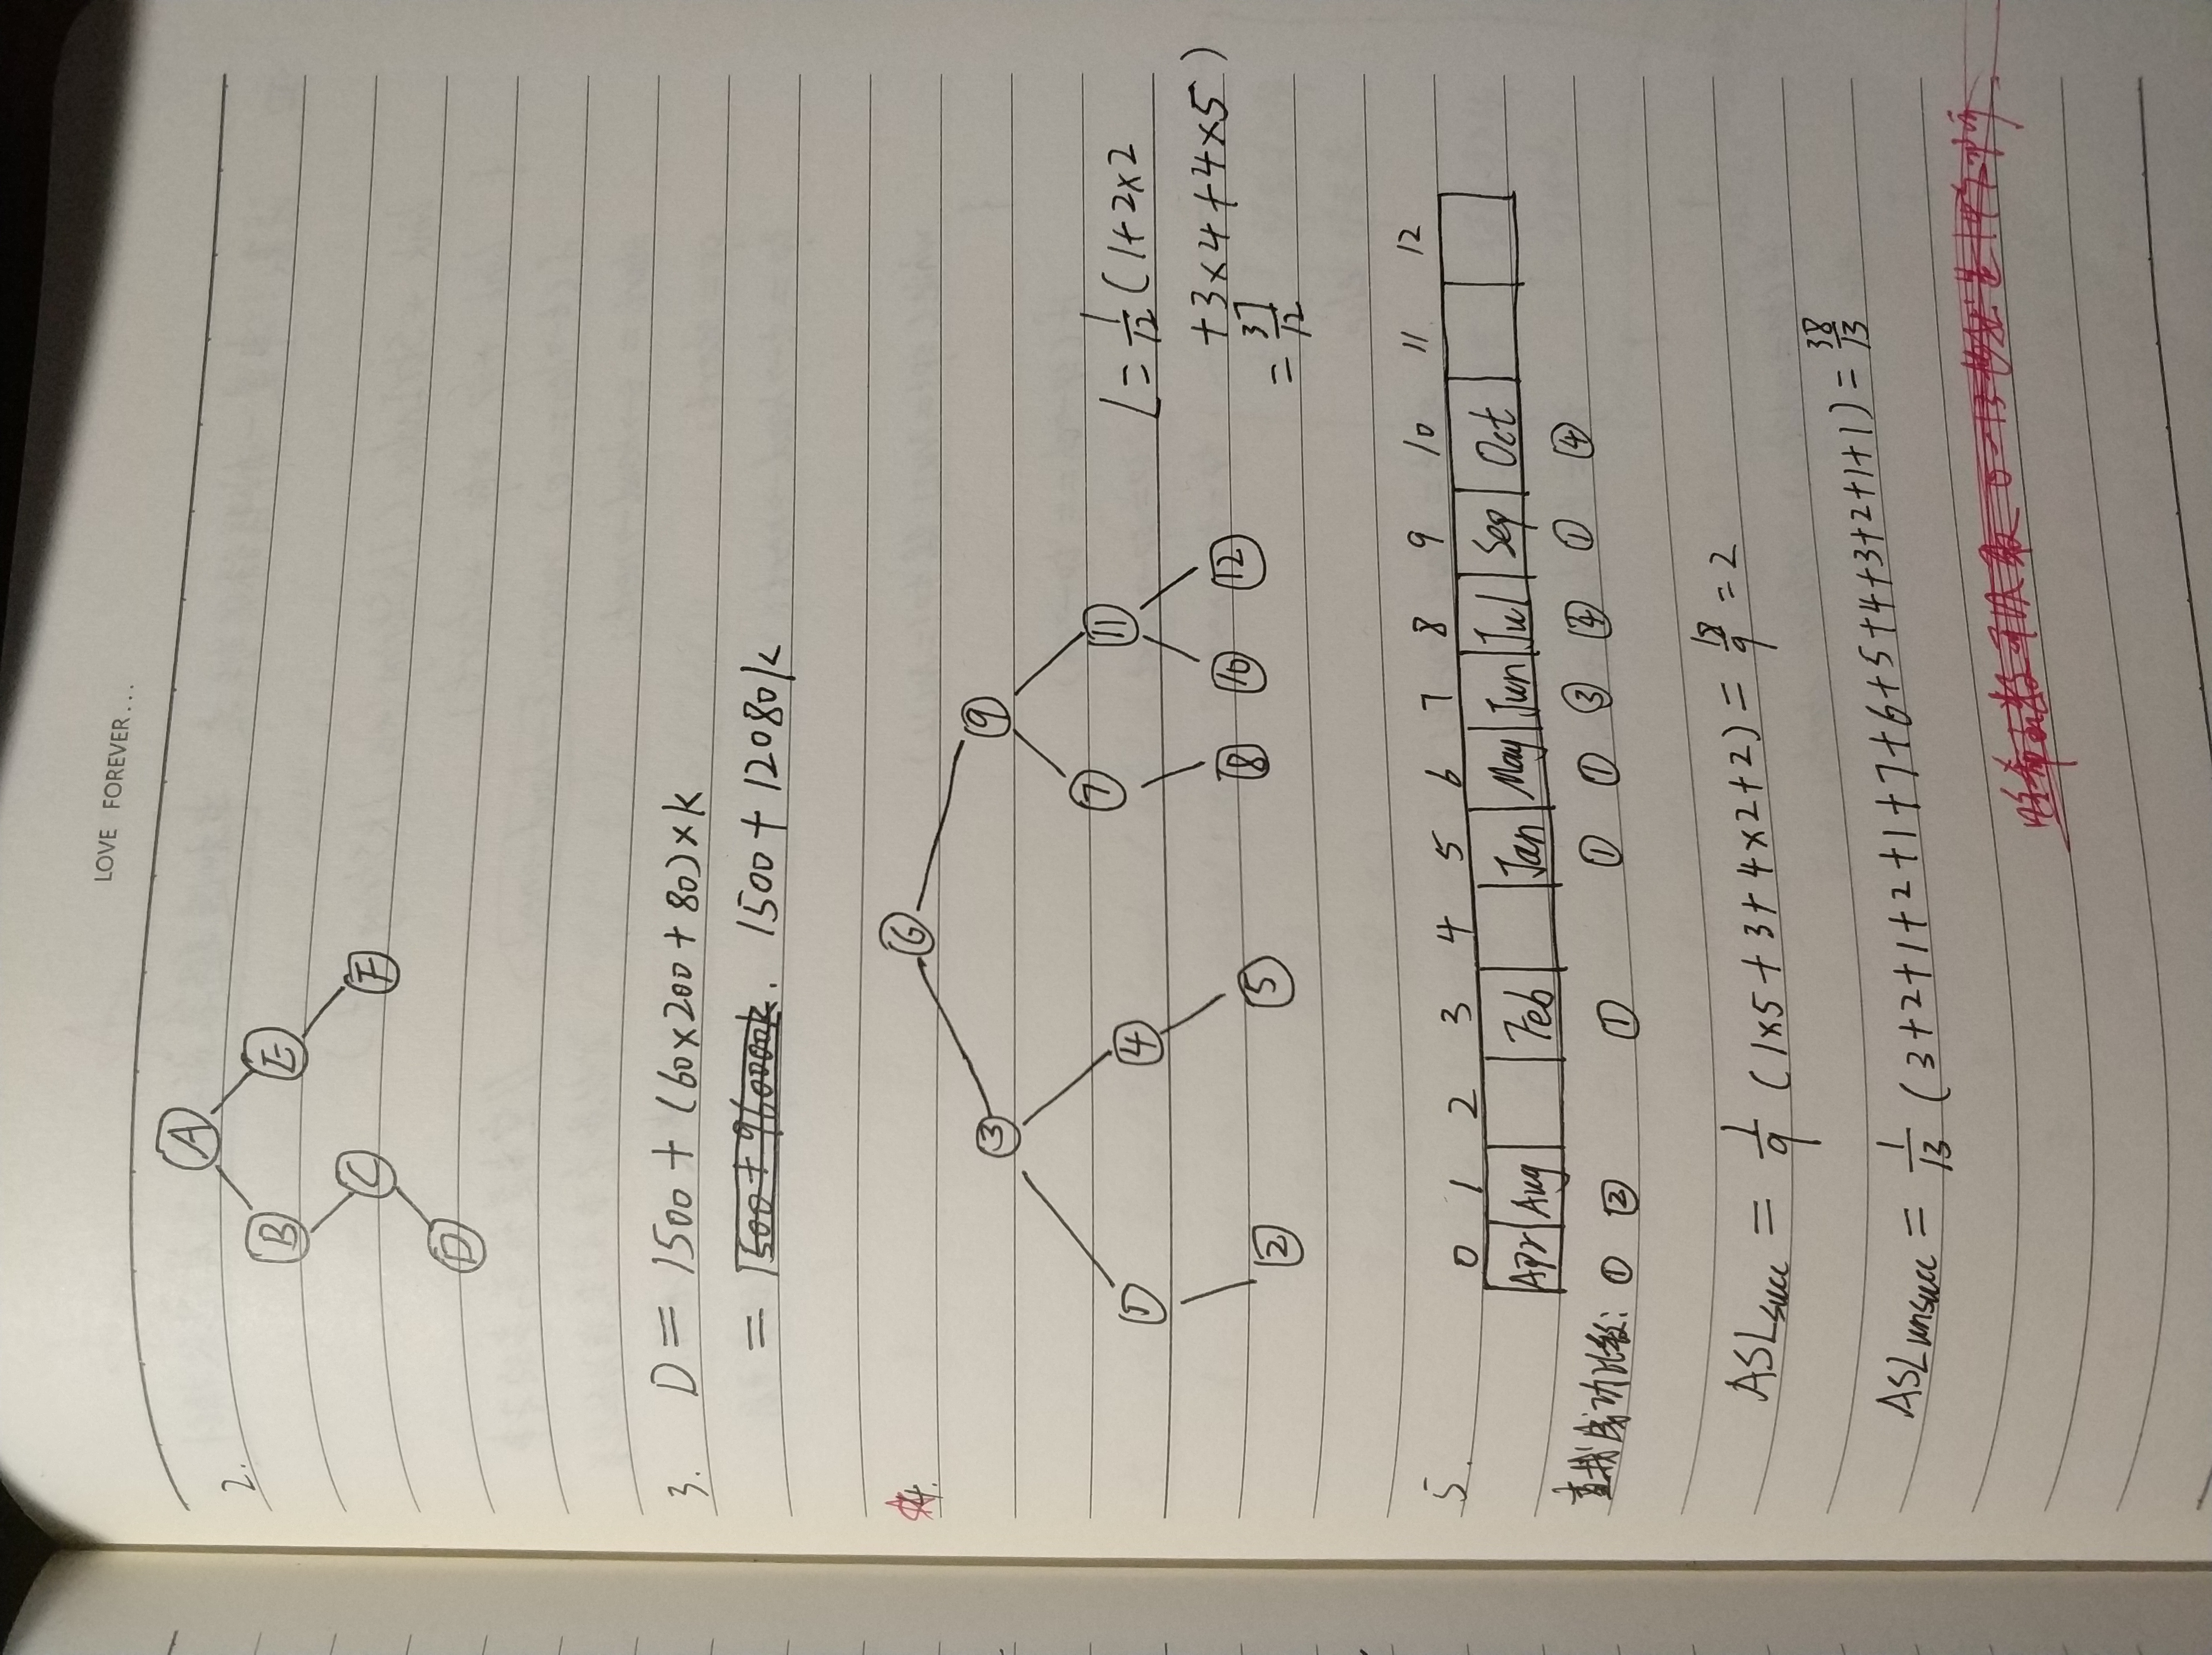 LOVE FOREVER...
2.
A
B E
C F
D
3. D = 1500 + (60×200 + 80)×k
= 1500 + 960000k. 1500 + 12080k
☆4.
6
3 9
1 4 7 11
2 5 8 10 12
L = 1/12 (1+2×2
+3×4+4×5)
= 37/12
5. 0 1 2 3 4 5 6 7 8 9 10 11 12
Apr Aug Feb Jan May Jun Jul Sep Oct
查找成功比较: ① ② ① ① ① ③ ④ ① ④
ASLsucc = 1/9 (1×5+3+4×2+2) = 18/9 = 2
ASLunsucc = 1/13 (3+2+1+2+1+7+6+5+4+3+2+1+1) = 38/13
哈希函数可以取 0-13